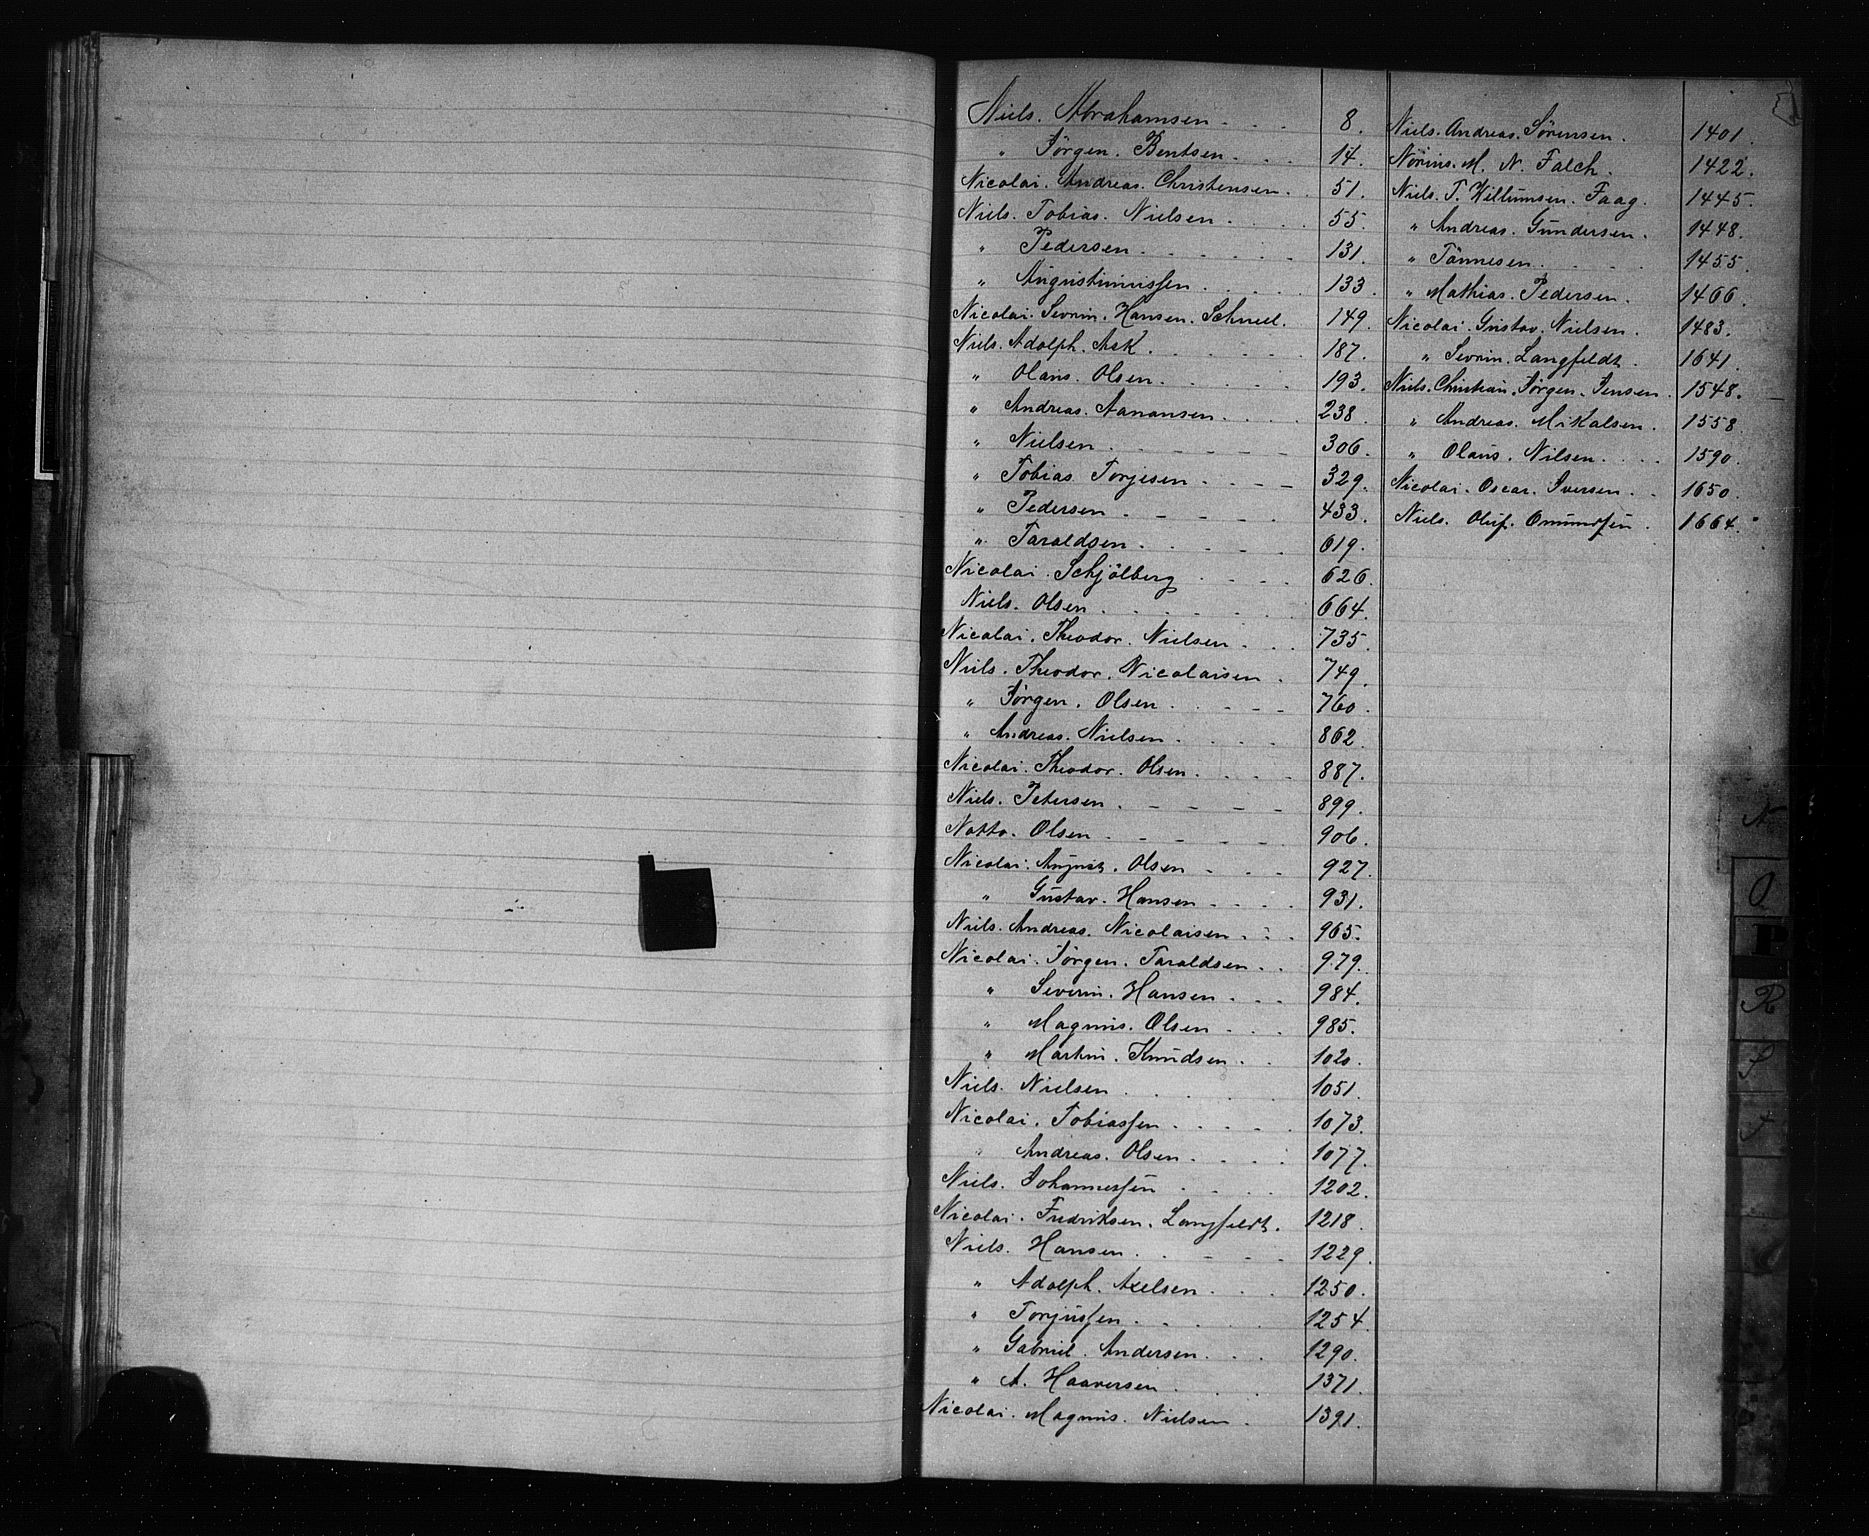 Niels. Abrahamsen . . . 8.
" Jörgen. Bentsen. . . 14.
Nicolai. Andreas. Christensen. . 51.
Niels. Tobias. Nielsen . . . 55.
" Pedersen . . . . . . 131.
" Augustinussen . . . . 133.
Nicolai. Sevrin. Hansen. 149.
Niels. Adolph. Ask . . . . . . 187.
" Olaus. Olsen . . . . . 193.
" Andreas. Aanansen . . . 238.
" Nielsen . . . . . . . 306.
" Tobias. Torjesen . . . . 329.
" Pedersen . . . . . 433.
" Taraldsen . . . . . 619.
Nicolai. Schjölberg . . . . 626.
Niels. Olsen . . . . . . . 664.
Nicolai. Theodor. Nielsen . . . 735.
Niels. Theodor. Nicolaisen . 749.
" Jörgen. Olsen . . . . . 760.
" Andreas. Nielsen . . . . 862.
Nicolai. Theodor. Olsen . . . . 887.
Niels. Petersen . . . . . 899.
Notto. Olsen . . . . . . 906.
Nicolai. August. Olsen . . . 927.
" Gustav. Hansen . . . . 931.
Niels. Andreas. Nicolaisen . . . 965.
Nicolai. Jörgen. Taraldsen . . 979.
" Severin. Hansen . . . 984.
" Magnus. Olsen . . . 985.
" Martin. Knudsen . . 1020.
Niels. Nielsen . . . . . 1051.
Nicolai. Tobiassen . . . . . 1073.
" Andreas. Olsen . . . . 1077.
Niels. Johannessen . . . . 1202.
Nicolai. Fredriksen. Langfeldt. 1218.
Niels. Hansen . . . . . 1229.
" Adolph. Axelsen . . . 1250.
" Torjussen . . . . . 1254.
" Gabriel. Andersen . . . 1290.
" A. Haaversen . . . 1371.
Nicolai. Magnus. Nielsen . 1391.
Niels. Andreas. Sörensen . 1401.
M. N. Falch . 1422.
Niels. T. Willumsen. Faag . 1445.
" Andreas. Gundersen . 1448.
" Tönnesen . . . . 1455.
" Mathias. Pedersen . 1466.
Nicolai. Gustav. Nielsen . 1483.
" Sevrin. Langfeldt . 1641.
Niels. Christian. Jörgen. Jensen . 1548.
" Andreas. Mikalsen . 1558.
" Olaus. Nilsen . . . . 1590.
Nicolai. Oscar. Iversen . . 1650.
Niels. Oluf. Omundsen . 1664.
N
O
P
R
S
T